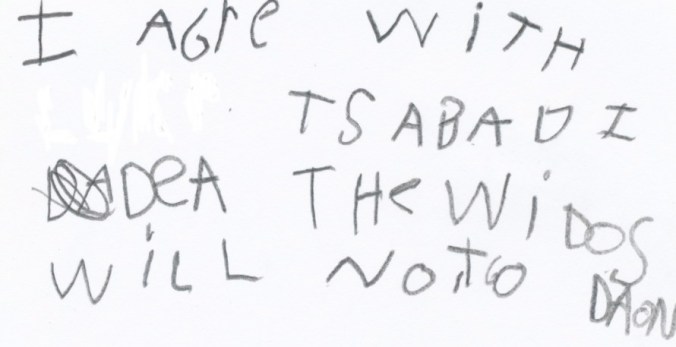 I AGre WiTH
TSABADI
DeA THe WiDOS
WiLL NOTGO
DAON